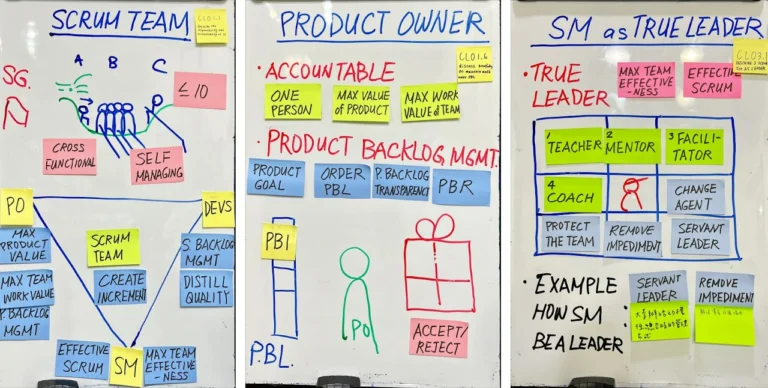 SCRUM TEAM
CLO1.5
A
B
C
SG.
≤ 10
CROSS
FUNCTIONAL
SELF
MANAGING
PO
DEVS
MAX
PRODUCT
VALUE
SCRUM
TEAM
S. BACKLOG
MGMT
MAX TEAM
WORK VALUE
CREATE
INCREMENT
DISTILL
QUALITY
P. BACKLOG
MGMT
EFFECTIVE
SCRUM
SM
MAX TEAM
EFFECTIVE
-NESS
PRODUCT OWNER
CLO1.6
• ACCOUNTABLE
ONE
PERSON
MAX VALUE
of PRODUCT
MAX WORK
VALUE of TEAM
• PRODUCT BACKLOG MGMT.
PRODUCT
GOAL
ORDER
PBL
P. BACKLOG
TRANSPARENCY
PBR
PBI
PO
P.BL.
ACCEPT/
REJECT
SM as TRUE LEADER
CLO3.1
• TRUE
LEADER
MAX TEAM
EFFECTIVE
-NESS
EFFECTIVE
SCRUM
1 TEACHER
2 MENTOR
3 FACILI-
TATOR
4
COACH
CHANGE
AGENT
PROTECT
THE TEAM
REMOVE
IMPEDIMENT
SERVANT
LEADER
• EXAMPLE
HOW SM
BE A LEADER
SERVANT
LEADER
REMOVE
IMPEDIMENT